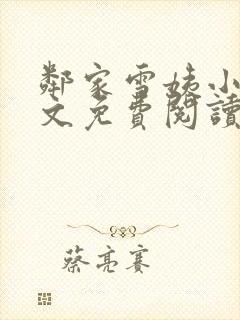 鄰家雪姨小
文免費閱讀
蔡亮賽